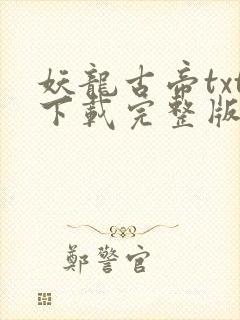 妖龍古帝txt
下載完整版
鄭警官